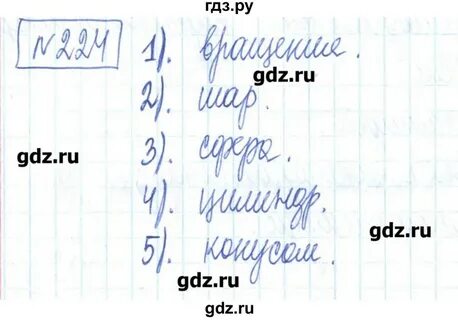 гдз.ру
№ 224 1). вращение.
gdz.ru
2). шар.
gdz.ru 3). сфера. gdz.ru
4). цилиндр.
gdz.ru
5). конусом.
gdz.ru gdz.ru